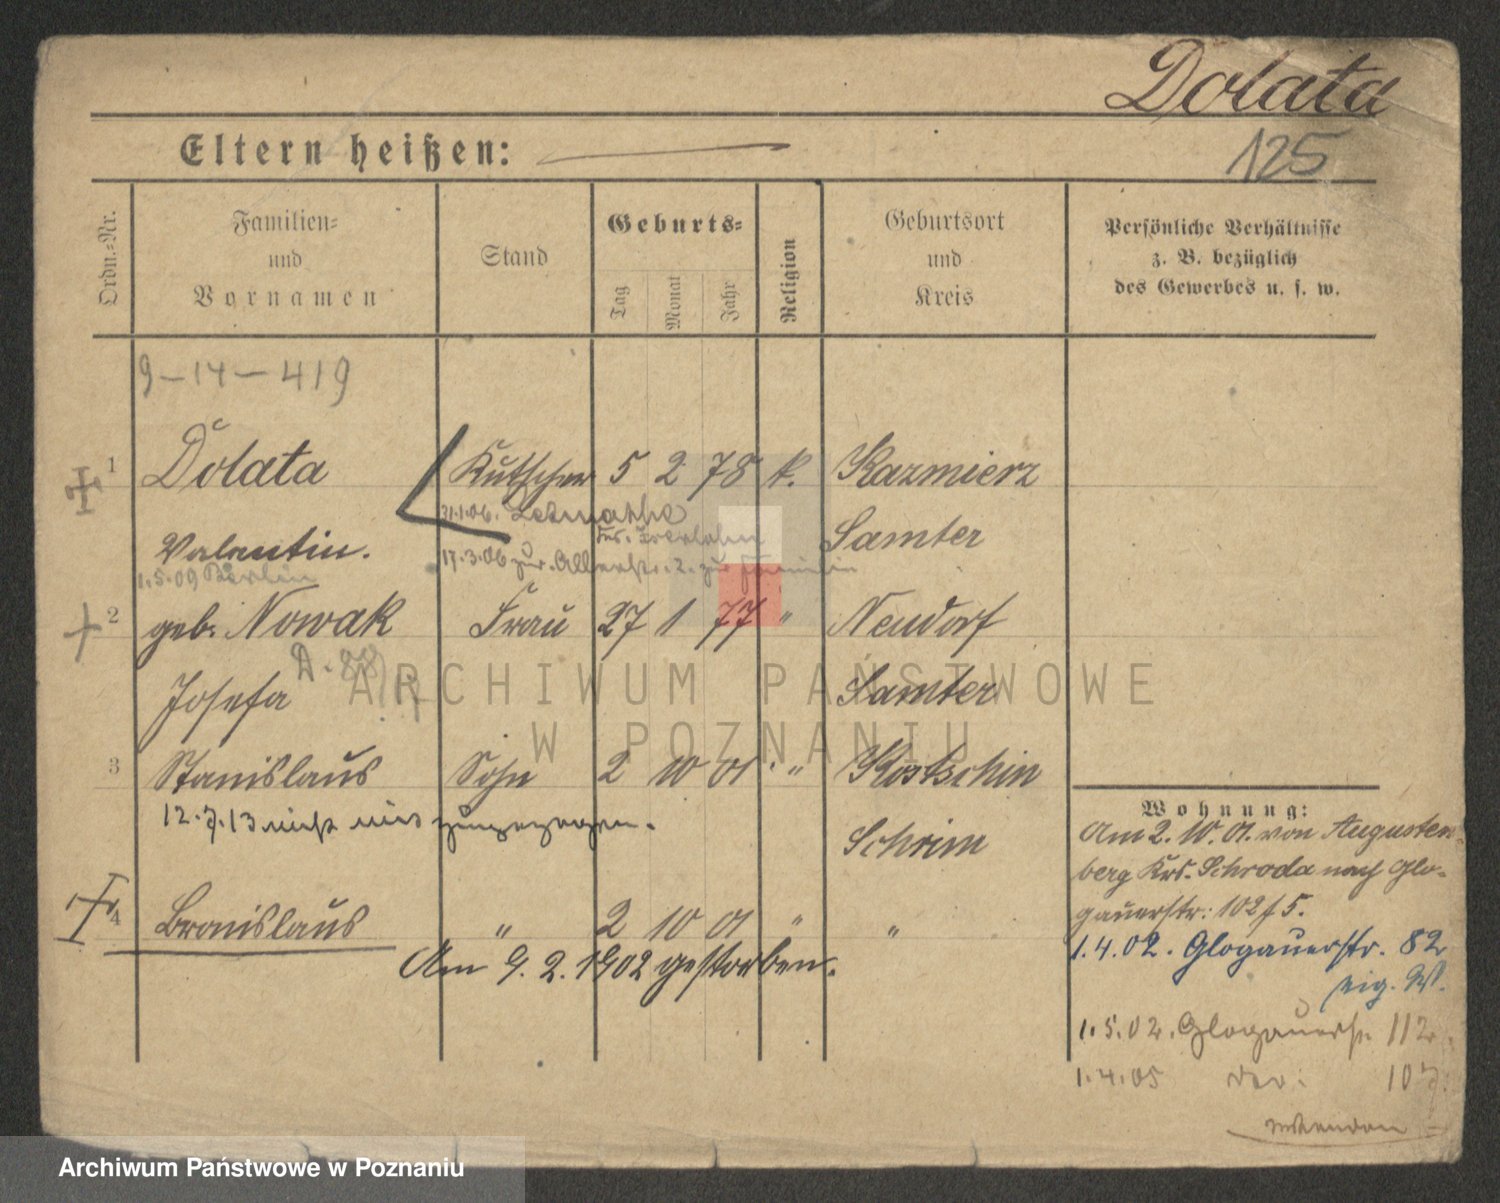 Dolata
125
Eltern heißen:
Ordn.-Nr.
Familien-
und
Vornamen
Stand
Geburts-
Tag
Monat
Jahr
Religion
Geburtsort
und
Kreis
Persönliche Verhältnisse
z. B. bezüglich
des Gewerbes u. s. w.
9-14-419
1 Dolata Kutscher 5 2 78 k. Kazmierz
31.1.06. Letmathe
Krs. Iserlohn
Valentin. Samter
17.3.06 zur. 2. zur Familie
1.5.09 Berlin
2 geb. Nowak Frau 27 1 77 " Neudorf
Josefa Samter
3 Stanislaus Sohn 2 10 01. " Kostschin
12.7.13 nicht mit zugezogen.
Schrim
4 Bronislaus " 2 10 01 " "
Am 9. 2. 1902 gestorben.
Wohnung:
Am 2. 10. 01. von Augusten-
berg Krs. Schroda nach Glo-
gauerstr: 102 f 5.
1.4.02. Glogauerstr. 82
eig. W.
1.5.02. Glogauerstr. 112
1.4.05 107.
ARCHIWUM PAŃSTWOWE
W POZNANIU
Archiwum Państwowe w Poznaniu